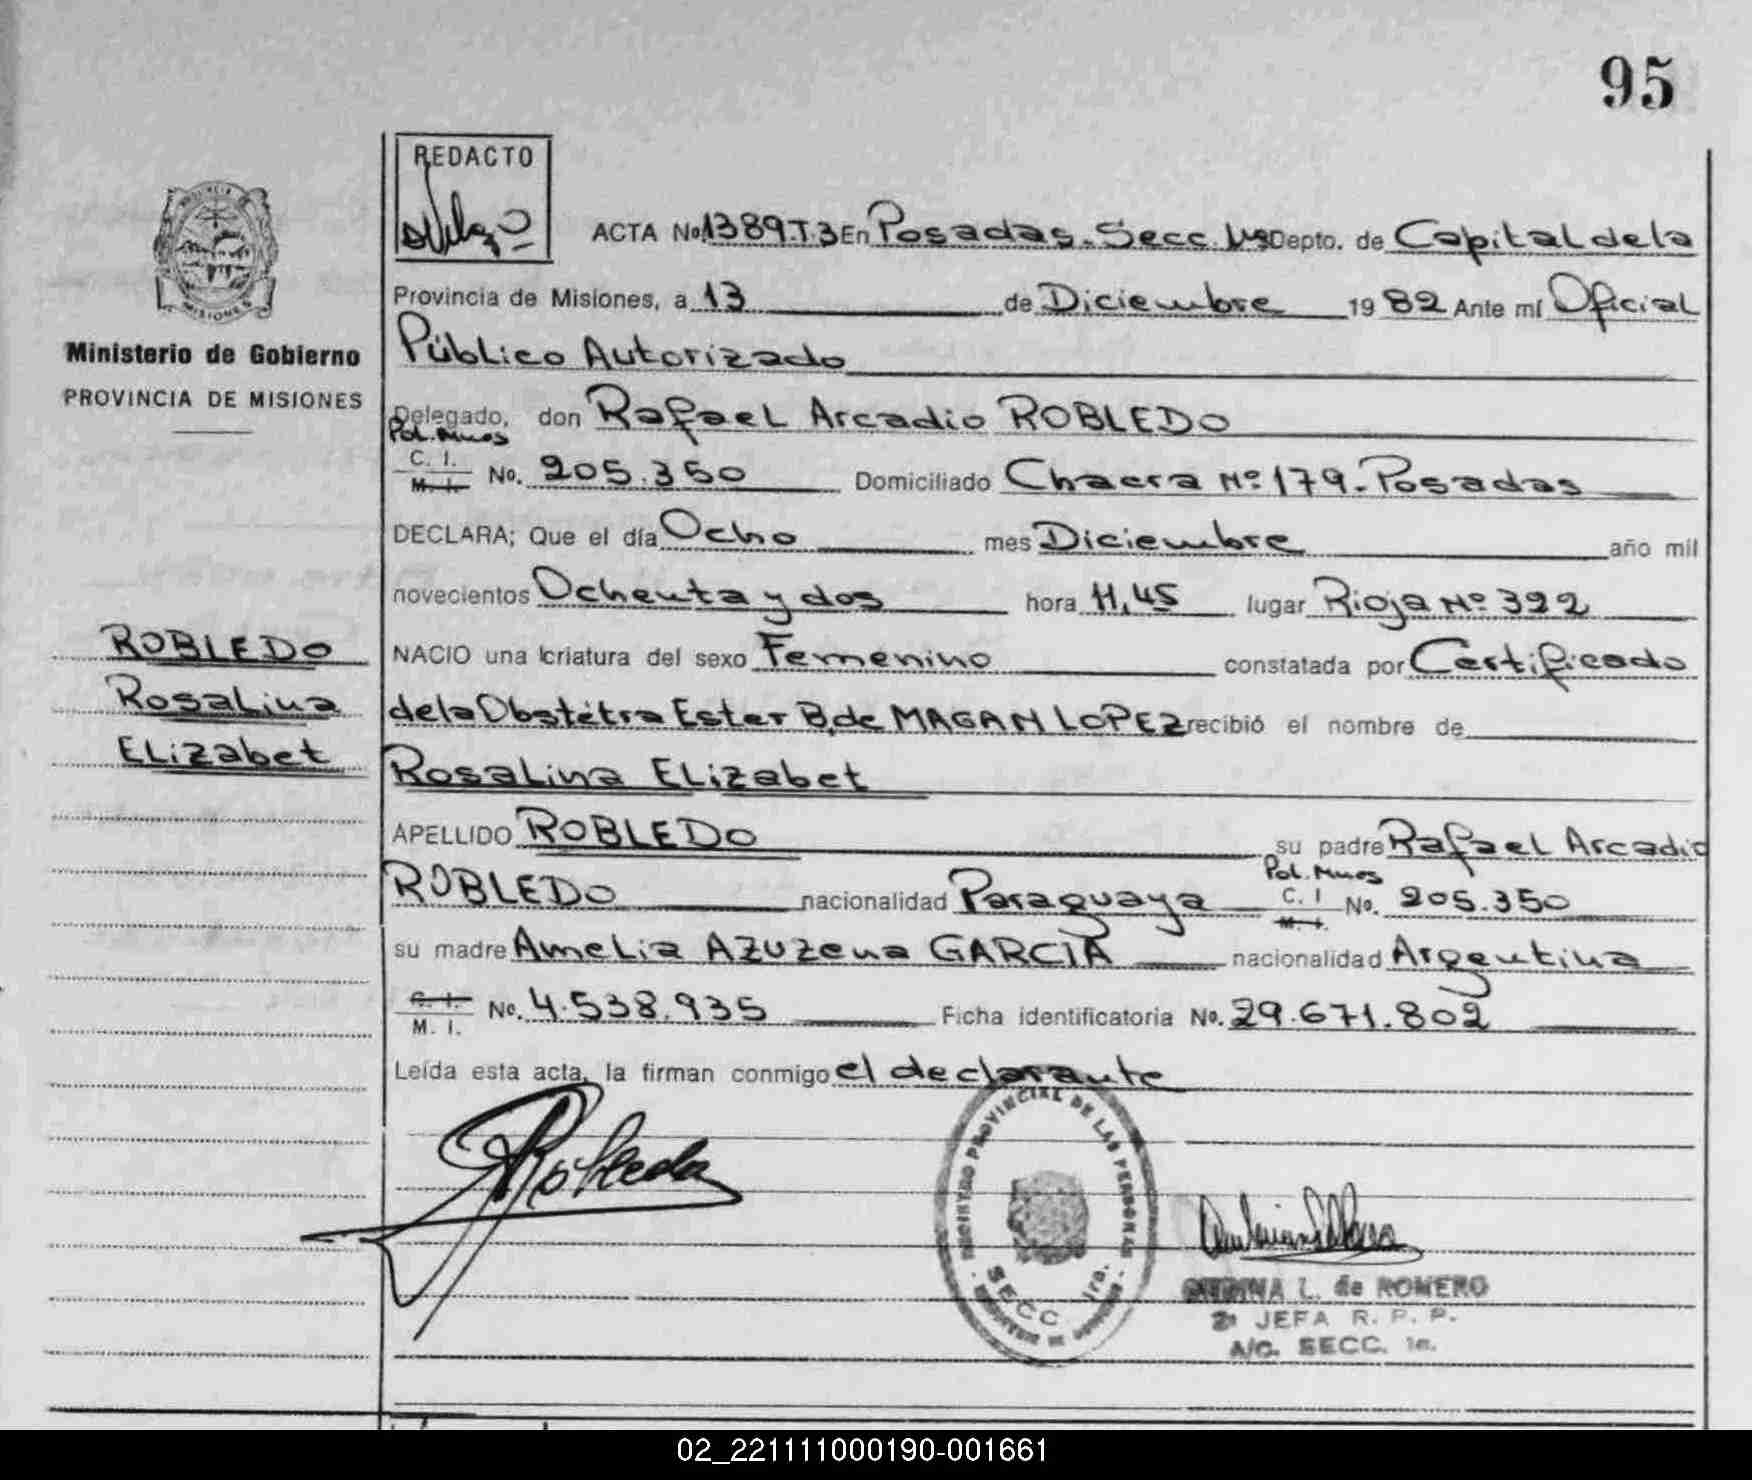 95
REDACTO
ACTA No. 1389.T.3 En Posadas. Secc. 1ª Depto. de Capital de la
Provincia de Misiones, a 13 de Diciembre 1982 Ante mí Oficial
Público Autorizado
Delegado, don Rafael Arcadio ROBLEDO
Pol. Mnes
C. I.
M. I. No. 205.350 Domiciliado Chacra Nº 179. Posadas
DECLARA; Que el día Ocho mes Diciembre año mil
novecientos Ochenta y dos hora 11,45 lugar Rioja Nº 392
NACIO una criatura del sexo Femenino constatada por Certificado
de la Obstétra Ester B. de MAGAN LOPEZ recibió el nombre de
Rosalina ELizabet
APELLIDO ROBLEDO su padre Rafael Arcadio
Pol. Mnes
ROBLEDO nacionalidad Paraguaya C. I
M. I. No. 205.350
su madre Amelia AZUZena GARCIA nacionalidad Argentina
C. I.
M. I. No. 4.538.935 Ficha identificatoria No. 29.671.802
Leída esta acta, la firman conmigo el declarante
PROVINCIA DE
MISIONES
Ministerio de Gobierno
PROVINCIA DE MISIONES
ROBLEDO
Rosalina
ELizabet
Robledo
REGISTRO PROVINCIAL DE LAS PERSONAS
SECC 1ra.
L. de ROMERO
2ª JEFA R. P. P.
A/C. SECC. 1a.
02_221111000190-001661